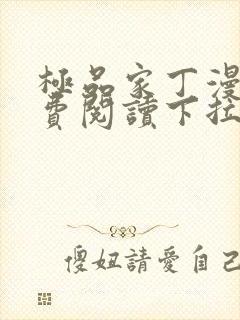 極品家丁漫
費閱讀下拉
傻妞請愛自己